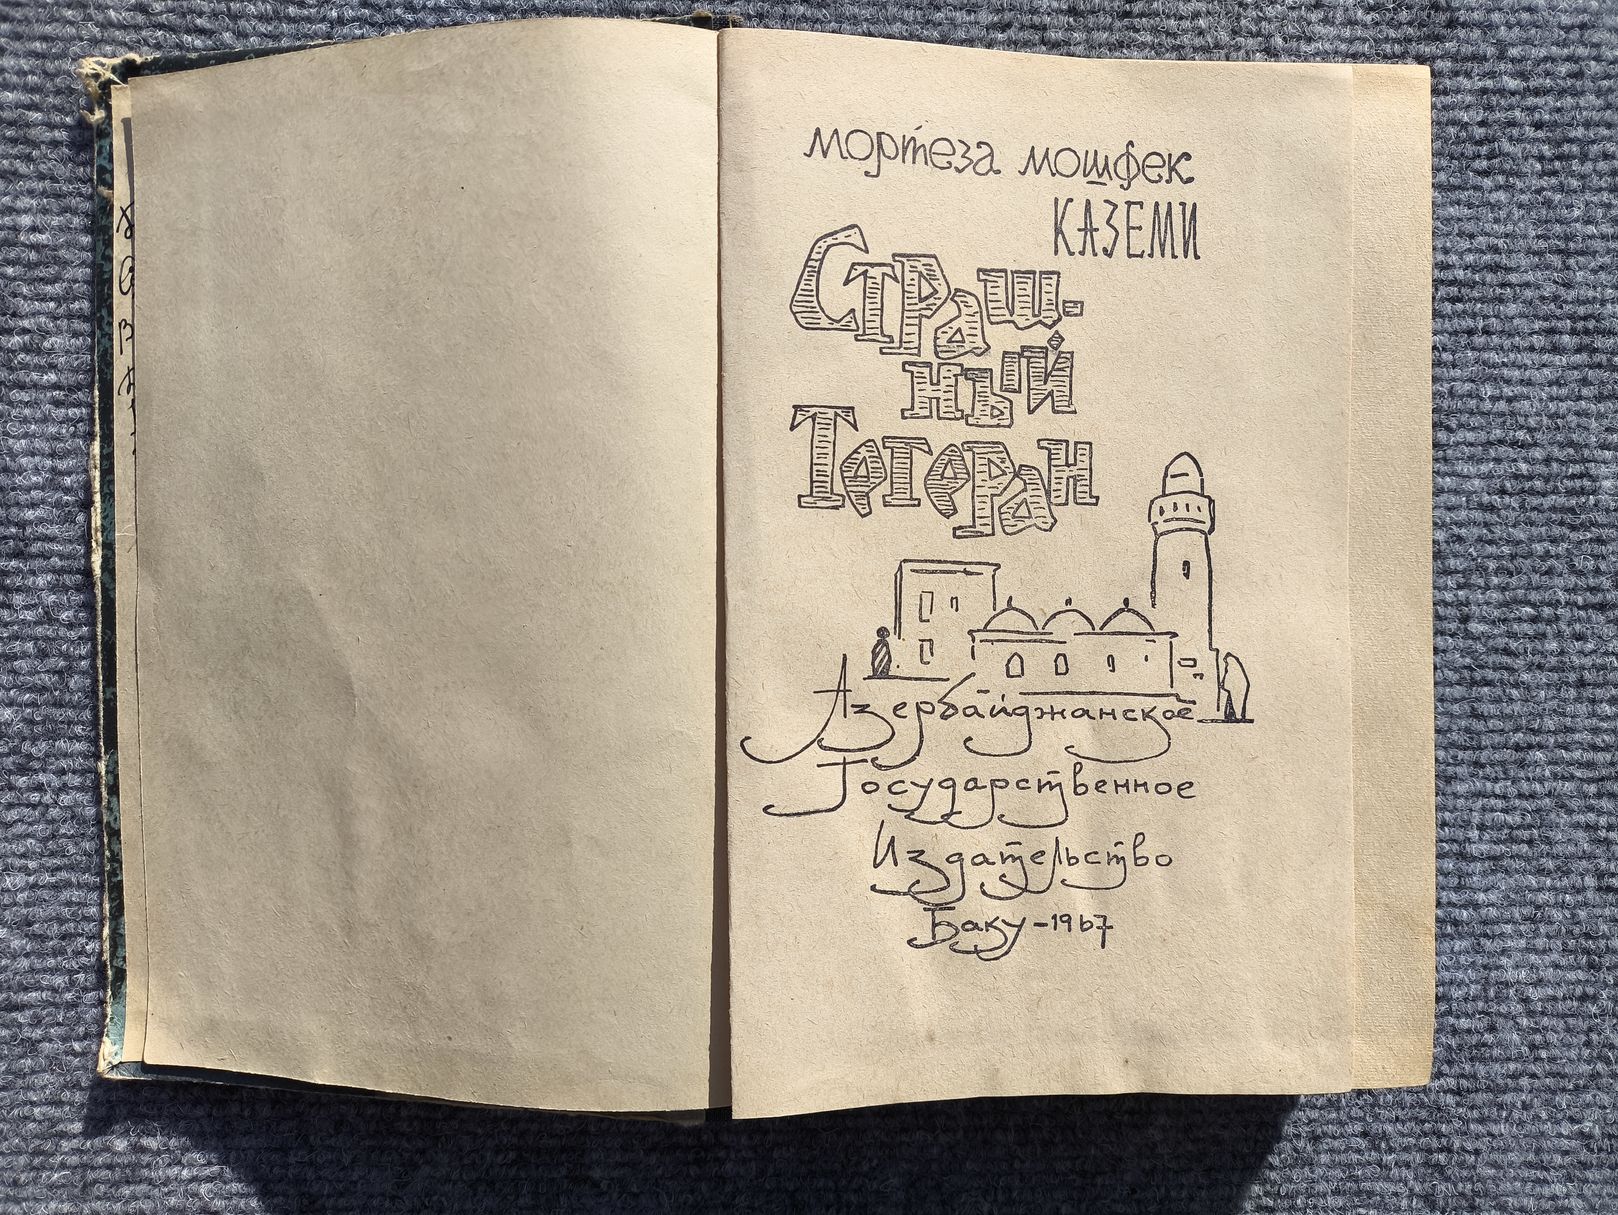 мортеза мошфек
КАЗЕМИ
Страш-
ный
Тегеран
Азербайджанское
Государственное
Издательство
Баку-1967